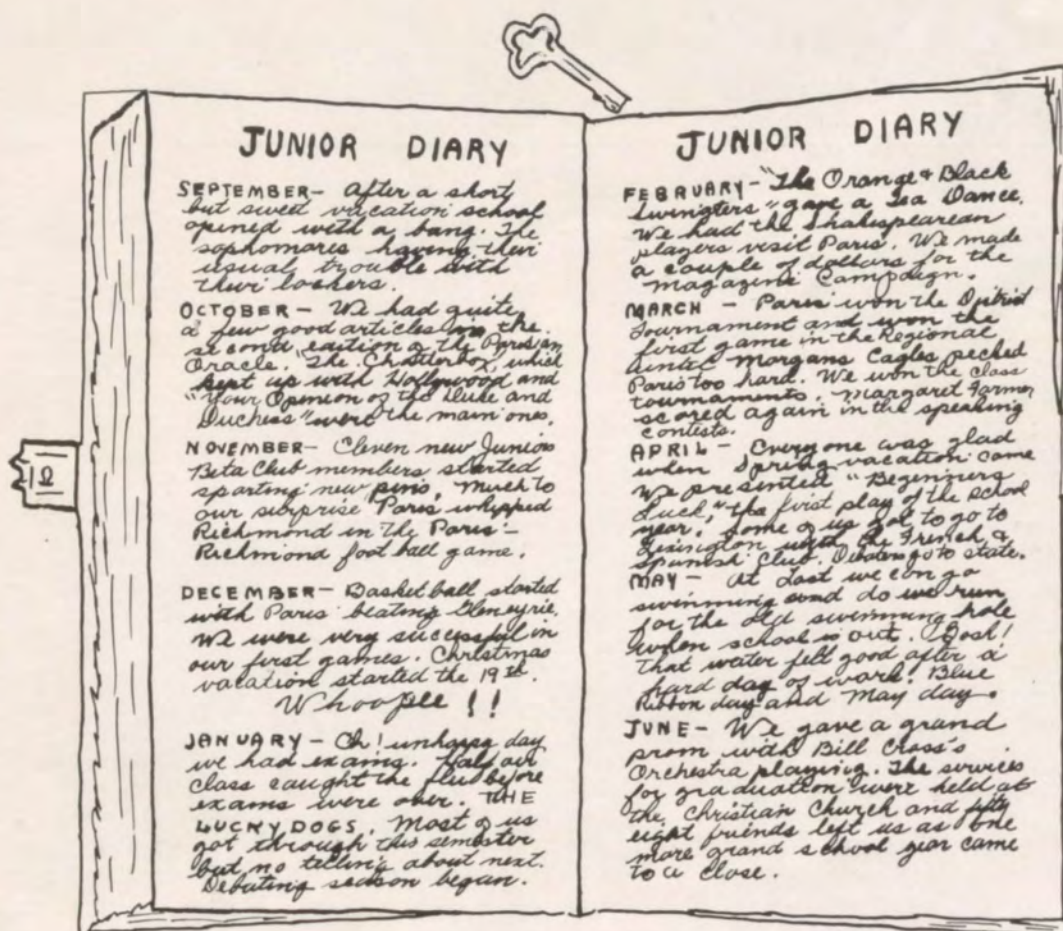 JUNIOR DIARY
SEPTEMBER - After a short
but sweet vacation school
opened with a bang. The
sophomores having their
usual trouble with
their lockers.
OCTOBER - We had quite
a few good articles in the
second edition of the Parisian
Oracle. "The Chatterbox", which
kept up with Hollywood and
"Your Opinion of the Duke and
Duchess" were the main ones.
NOVEMBER - Eleven new Junior
Beta Club members started
sporting new pins. Much to
our surprise Paris whipped
Richmond in the Paris-
Richmond foot ball game.
DECEMBER - Basket ball started
with Paris beating Gleneyrie.
We were very successful in
our first games. Christmas
vacation started the 19th.
Whoopee !!
JANUARY - Oh! unhappy day
we had exams. Half our
class caught the flu before
exams were over. THE
LUCKY DOGS. Most of us
got through this semester
but no telling about next.
Debating season began.
JUNIOR DIARY
FEBRUARY - "The Orange & Black
Swingters" gave a Tea Dance.
We had the Shakespearean
players visit Paris. We made
a couple of dollars for the
Magazine Campaign.
MARCH - Paris won the District
Tournament and won the
first game in the Regional
until Morgans Eagles pecked
Paris too hard. We won the class
tournaments. Margaret Farmer
scored again in the speaking
contests.
APRIL - Everyone was glad
when Spring vacation came
We presented "Beginners
Luck," the first play of the school
year. Some of us got to go to
Lexington with the French &
Spanish Club. Debaters go to state.
MAY - At last we can go
swimming and do we run
for the old swimming hole
when school is out. Gosh!
That water felt good after a
hard day of work. Blue
Ribbon day and May day.
JUNE - We gave a grand
prom with Bill Cross's
Orchestra playing. The services
for graduation were held at
the Christian Church and fifty
eight friends left us as one
more grand school year came
to a close.